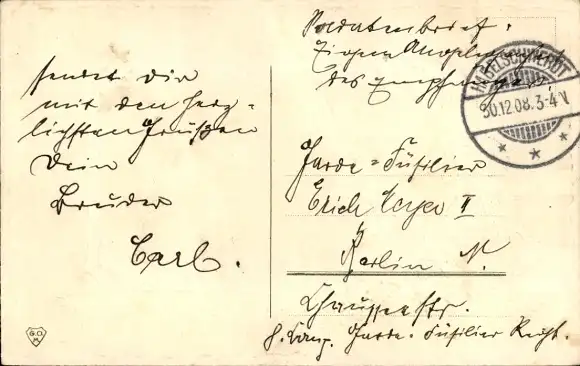 sendet Dir
mit den herz-
lichsten Grüßen
Dein
Bruder
Carl.
Soldatenbrief.
Eigene Angelegenheit
des Empfängers
HABELSCHWERDT
30.12.08.3-4N
Garde-Füsilier
Erich Meyer II
Berlin N.
Chausseestr.
8. Comp. Garde-Füsilier Regt.
G.O.M.